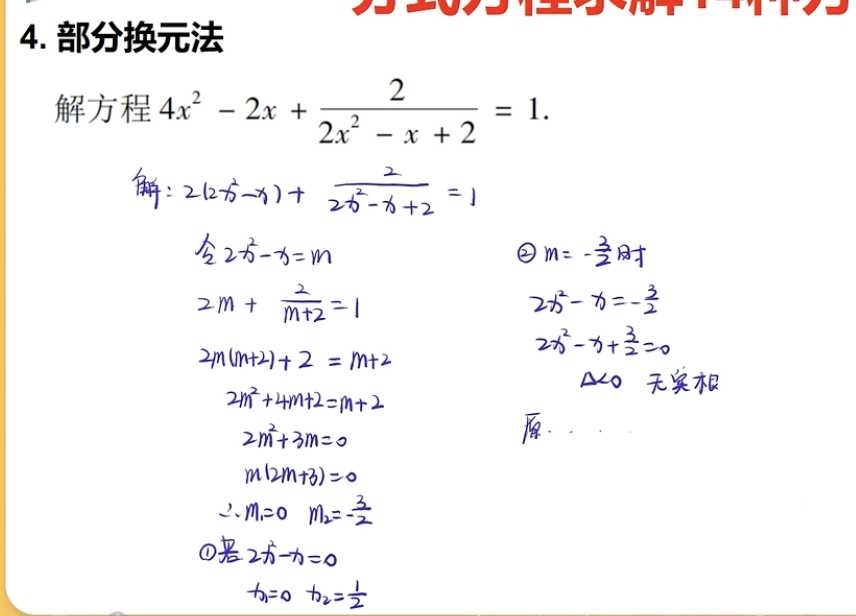 分式方程求解14种方
4. 部分换元法
解方程 4x² − 2x + 2/(2x² − x + 2) = 1.
解: 2(2x²−x) + 2/(2x²−x+2) = 1
令 2x²−x=m
2m + 2/(m+2) = 1
2m(m+2)+2 = m+2
2m²+4m+2=m+2
2m²+3m=0
m(2m+3)=0
∴ m₁=0 m₂=-3/2
①若 2x²−x=0
x₁=0 x₂=1/2
② m= -3/2 时
2x²− x = -3/2
2x²−x+3/2=0
Δ<0 无实根
原. . . . .